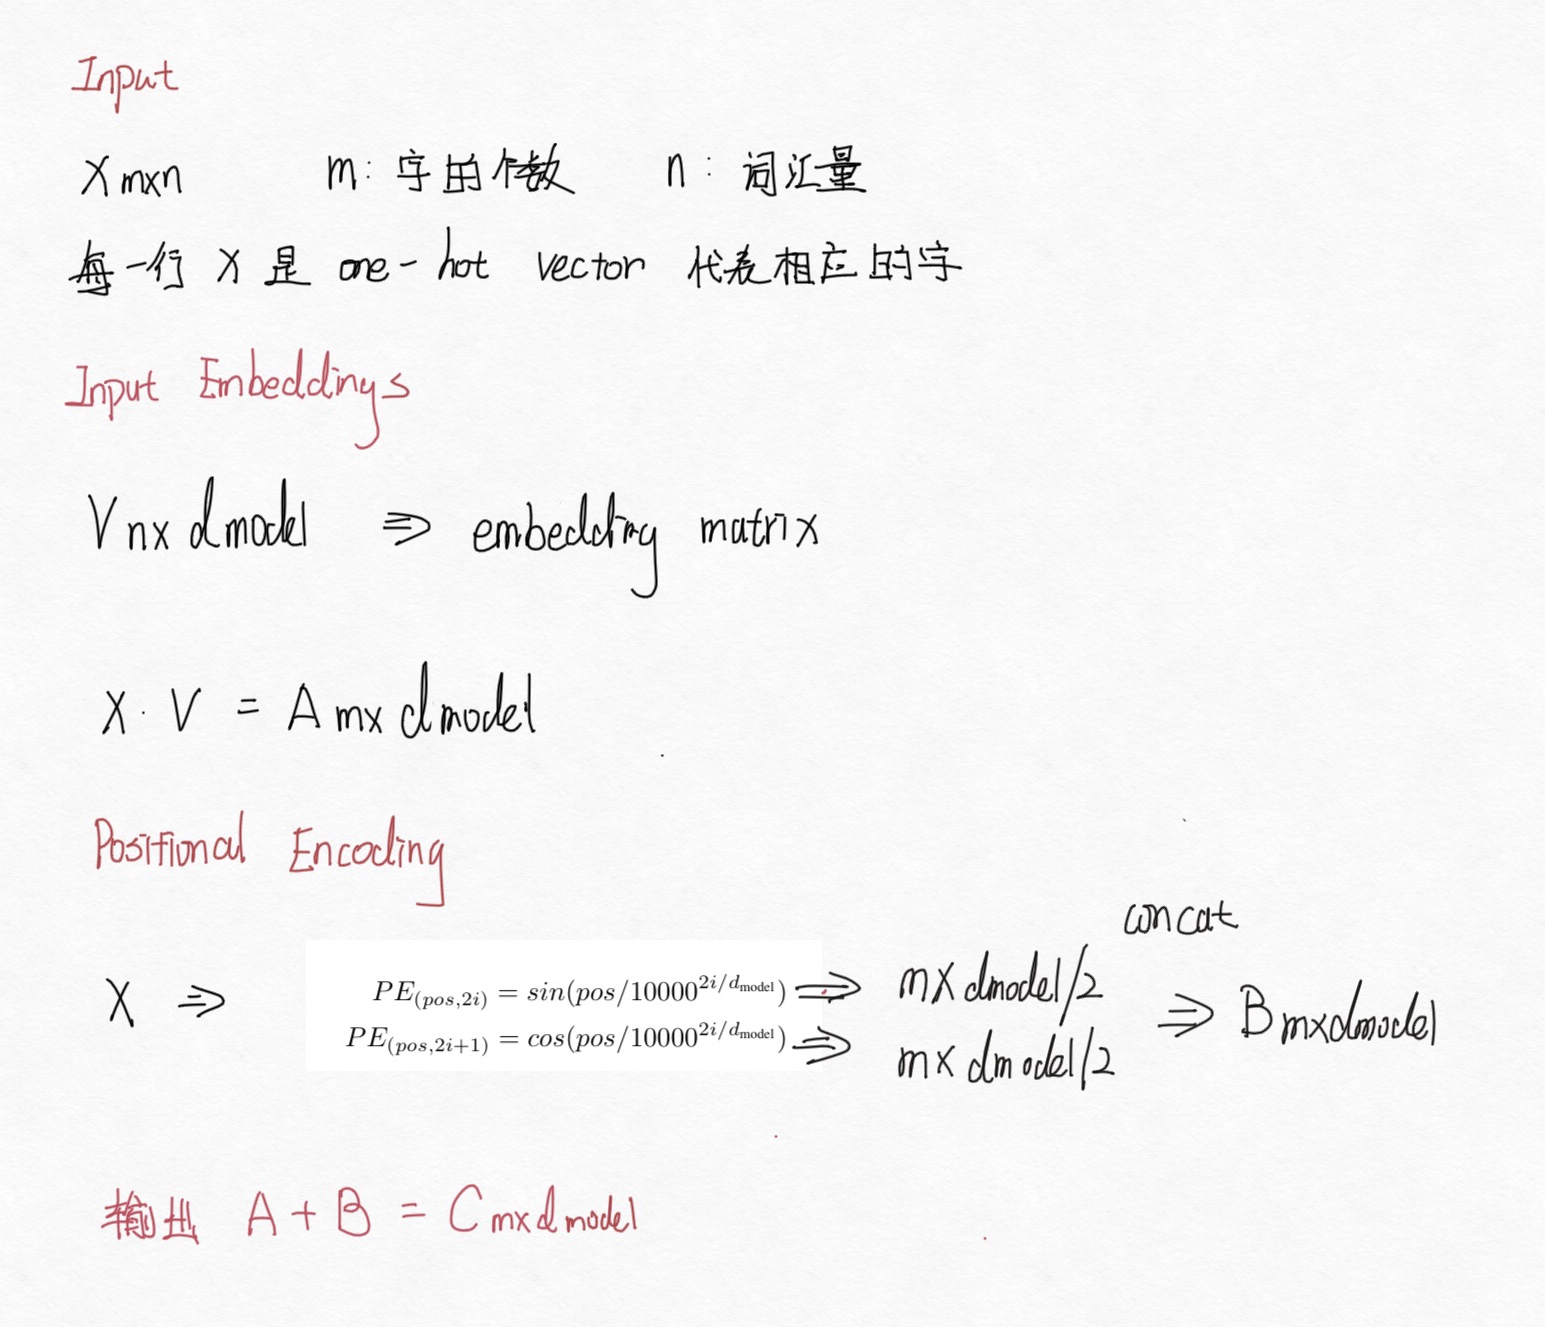 Input
X mxn m: 字的个数 n: 词汇量
每一行 X 是 one-hot vector 代表相应的字
Input Embeddings
V nx dmodel ⇒ embedding matrix
X · V = A mx dmodel
Positional Encoding
concat
X ⇒ PE(pos,2i) = sin(pos/10000^2i/dmodel) ⇒ mx dmodel/2 ⇒ B mxdmodel
PE(pos,2i+1) = cos(pos/10000^2i/dmodel) ⇒ mx dmodel/2
输出 A + B = C mxdmodel